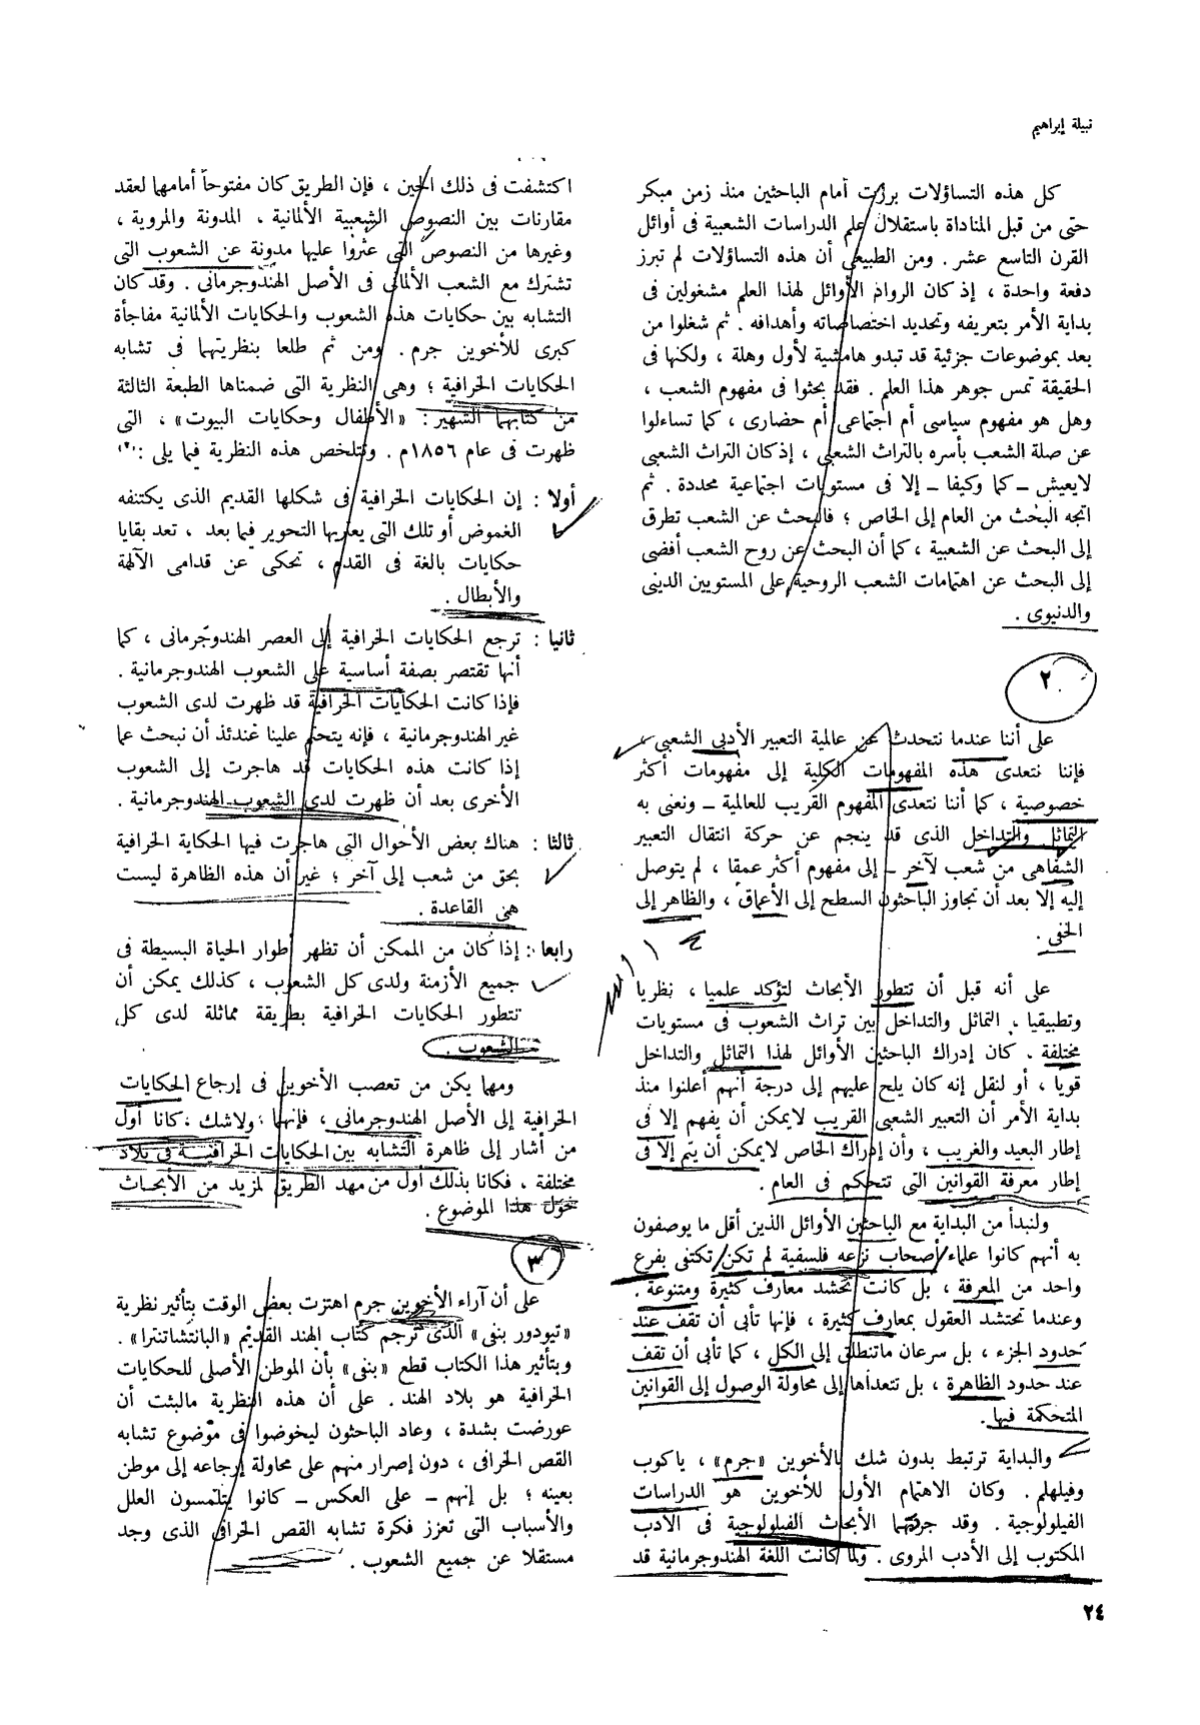 نبيلة إبراهيم
كل هذه التساؤلات برزت أمام الباحثين منذ زمن مبكر
حتى من قبل المناداة باستقلال علم الدراسات الشعبية فى أوائل
القرن التاسع عشر . ومن الطبيعى أن هذه التساؤلات لم تبرز
دفعة واحدة ، إذ كان الرواد الأوائل لهذا العلم مشغولين فى
بداية الأمر بتعريفه وتحديد اختصاصاته وأهدافه . ثم شغلوا من
بعد بموضوعات جزئية قد تبدو هامشية لأول وهلة ، ولكنها فى
الحقيقة تمس جوهر هذا العلم . فقد بحثوا فى مفهوم الشعب ،
وهل هو مفهوم سياسى أم اجتماعى أم حضارى ، كما تساءلوا
عن صلة الشعب بأسره بالتراث الشعبى ، إذ كان التراث الشعبى
لايعيش – كما وكيفا – إلا فى مستويات اجتماعية محددة . ثم
اتجه البحث من العام إلى الخاص ؛ فالبحث عن الشعب تطرق
إلى البحث عن الشعبية ، كما أن البحث عن روح الشعب أفضى
إلى البحث عن اهتمامات الشعب الروحية على المستويين الدينى
والدنيوى .
٢
على أننا عندما نتحدث عن عالمية التعبير الأدبى الشعبى ،
فإننا نتعدى هذه المفهومات الكلية إلى مفهومات أكثر
خصوصية ، كما أننا نتعدى المفهوم القريب للعالمية – ونعنى به
التماثل والتداخل الذى قد ينجم عن حركة انتقال التعبير
الشفاهى من شعب لآخر – إلى مفهوم أكثر عمقا ، لم يتوصل
إليه إلا بعد أن تجاوز الباحثون السطح إلى الأعماق ، والظاهر إلى
الخفى .
على أنه قبل أن تتطور الأبحاث لتؤكد علميا ، نظريا
وتطبيقيا ، التماثل والتداخل بين تراث الشعوب فى مستويات
مختلفة . كان إدراك الباحثين الأوائل لهذا التماثل والتداخل
قويا ، أو لنقل إنه كان يلح عليهم إلى درجة أنهم أعلنوا منذ
بداية الأمر أن التعبير الشعبى القريب لايمكن أن يفهم إلا فى
إطار البعيد والغريب ، وأن إدراك الخاص لايمكن أن يتم إلا فى
إطار معرفة القوانين التى تتحكم فى العام .
ولنبدأ من البداية مع الباحثين الأوائل الذين أقل ما يوصفون
به أنهم كانوا علماء أصحاب نزعه فلسفية لم تكن تكتفى بفرع
واحد من المعرفة ، بل كانت تحشد معارف كثيرة ومتنوعة .
وعندما تحتشد العقول بمعارف كثيرة ، فإنها تأبى أن تقف عند
حدود الجزء ، بل سرعان ماتنطلق إلى الكل ، كما تأبى أن تقف
عند حدود الظاهرة ، بل تتعداها إلى محاولة الوصول إلى القوانين
المتحكمة فيها .
والبداية ترتبط بدون شك بالأخوين «جرم» ، ياكوب
وفيلهلم . وكان الاهتمام الأول للأخوين هو الدراسات
الفيلولوجية . وقد جرتهما الأبحاث الفيلولوجية فى الأدب
المكتوب إلى الأدب المروى . ولما كانت اللغة الهندوجرمانية قد
اكتشفت فى ذلك الحين ، فإن الطريق كان مفتوحاً أمامهما لعقد
مقارنات بين النصوص الشعبية الألمانية ، المدونة والمروية ،
وغيرها من النصوص التى عثروا عليها مدونة عن الشعوب التى
تشترك مع الشعب الألمانى فى الأصل الهندوجرمانى . وقد كان
التشابه بين حكايات هذه الشعوب والحكايات الألمانية مفاجأة
كبرى للأخوين جرم . ومن ثم طلعا بنظريتهما فى تشابه
الحكايات الخرافية ؛ وهى النظرية التى ضمناها الطبعة الثالثة
من كتابهما الشهير : «الأطفال وحكايات البيوت» ، التى
ظهرت فى عام ١٨٥٦م . وتتلخص هذه النظرية فيما يلى :
أولا : إن الحكايات الخرافية فى شكلها القديم الذى يكتنفه
الغموض أو تلك التى يعتريها التحوير فيما بعد ، تعد بقايا
حكايات بالغة فى القدم ، تحكى عن قدامى الآلهة
والأبطال .
ثانيا : ترجع الحكايات الخرافية إلى العصر الهندوجرمانى ، كما
أنها تقتصر بصفة أساسية على الشعوب الهندوجرمانية .
فإذا كانت الحكايات الخرافية قد ظهرت لدى الشعوب
غير الهندوجرمانية ، فإنه يتحتم علينا عندئذ أن نبحث عما
إذا كانت هذه الحكايات قد هاجرت إلى الشعوب
الأخرى بعد أن ظهرت لدى الشعوب الهندوجرمانية .
ثالثا : هناك بعض الأحوال التى هاجرت فيها الحكاية الخرافية
بحق من شعب إلى آخر ؛ غير أن هذه الظاهرة ليست
هى القاعدة .
رابعا : إذا كان من الممكن أن تظهر أطوار الحياة البسيطة فى
جميع الأزمنة ولدى كل الشعوب ، كذلك يمكن أن
تتطور الحكايات الخرافية بطريقة مماثلة لدى كل
الشعوب .
ومهما يكن من تعصب الأخوين فى إرجاع الحكايات
الخرافية إلى الأصل الهندوجرمانى ، فإنهما ولاشك ، كانا أول
من أشار إلى ظاهرة التشابه بين الحكايات الخرافيــة فى بلاد
مختلفة ، فكانا بذلك أول من مهد الطريق لمزيد من الأبحـاث
حول هذا الموضوع .
٣
على أن آراء الأخوين جرم اهتزت بعض الوقت بتأثير نظرية
«تيودور بنفى» الذى ترجم كتاب الهند القديم «البانتشاتنترا» .
وبتأثير هذا الكتاب قطع «بنفى» بأن الموطن الأصلى للحكايات
الخرافية هو بلاد الهند . على أن هذه النظرية مالبثت أن
عورضت بشدة ، وعاد الباحثون ليخوضوا فى موضوع تشابه
القص الخرافى ، دون إصرار منهم على محاولة إرجاعه إلى موطن
بعينه ؛ بل إنهم – على العكس – كانوا يتلمسون العلل
والأسباب التى تعزز فكرة تشابه القص الخرافى الذى وجد
مستقلا عن جميع الشعوب .
٢٤